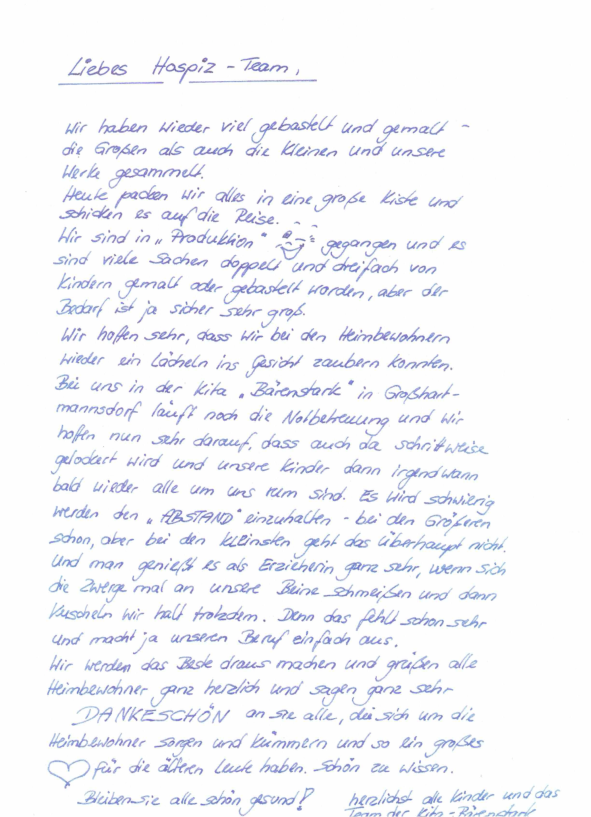 Liebes Hospiz-Team,
Wir haben wieder viel gebastelt und gemalt -
die Großen als auch die Kleinen und unsere
Werke gesammelt.
Heute packen wir alles in eine große Kiste und
schicken es auf die Reise.
Wir sind in „Produktion" gegangen und es
sind viele Sachen doppelt und dreifach von
Kindern gemalt oder gebastelt worden, aber der
Bedarf ist ja sicher sehr groß.
Wir hoffen sehr, dass wir bei den Heimbewohnern
wieder ein Lächeln ins Gesicht zaubern konnten.
Bei uns in der Kita „Bärenstark" in Großhart-
mannsdorf läuft noch die Notbetreuung und wir
hoffen nun sehr darauf, dass auch da schrittweise
gelockert wird und unsere Kinder dann irgendwann
bald wieder alle um uns rum sind. Es wird schwierig
werden den „ABSTAND" einzuhalten - bei den Größeren
schon, aber bei den kleinsten geht das überhaupt nicht.
Und man genießt es als Erzieherin ganz sehr, wenn sich
die Zwerge mal an unsere Beine schmeißen und dann
kuscheln wir halt trotzdem. Denn das fehlt schon sehr
und macht ja unseren Beruf einfach aus.
Wir werden das Beste draus machen und grüßen alle
Heimbewohner ganz herzlich und sagen ganz sehr
DANKESCHÖN an sie alle, die sich um die
Heimbewohner sorgen und kümmern und so ein großes
für die älteren Leute haben. Schön zu wissen.
Bleiben sie alle schön gesund! herzlichst alle Kinder und das
Team der Kita-Bärenstark